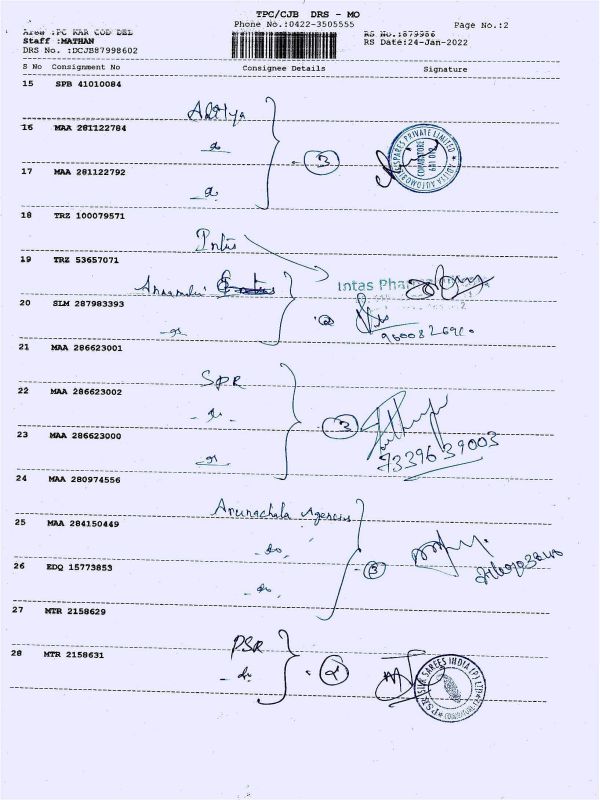 TPC/CJB DRS - MO
Area :PC RAR COD DEL
Phone No.:0422-3505555
Page No.:2
Staff :MATHAN
RS No.:879986
DRS No. :DCJB87998602
RS Date:24-Jan-2022
S No Consignment No Consignee Details Signature
15 SPB 41010084
Aditya
16 MAA 281122784
do
3
17 MAA 281122792
do
18 TRZ 100079571
Intas
19 TRZ 53657071
Intas Pharma
20 SLM 287983393
2
do
21 MAA 286623001
SPR
22 MAA 286623002
do
3
23 MAA 286623000
do
7339639003
24 MAA 280974556
Arunachala Agencies
25 MAA 284150449
do
26 EDQ 15773853
3
do
27 MTR 2158629
PSR
28 MTR 2158631
do
2
ADITYA AUTOMOBILE SPARES PRIVATE LIMITED
COIMBATORE
641 002
PSR SILK SAREES INDIA (P) LTD